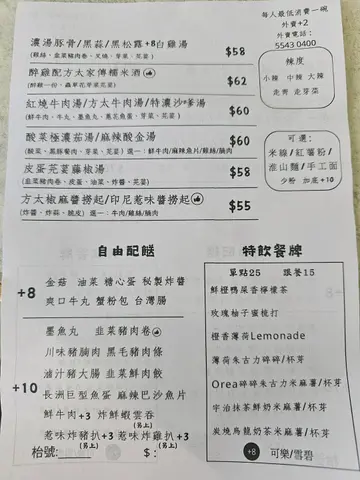 每人最低消費一碗
外賣+2
外賣電話：
5543 0400
濃湯豚骨/黑蒜/黑松露+8白雞湯 $58
(雞絲、韭菜豬肉卷、叉燒、芽菜、芫荽)
醉雞配方太家傳糯米酒 $62
(醉雞一份、蟲草花芽菜芫荽)
紅燒牛肉湯/方太牛肉湯/特濃沙嗲湯 $60
(鮮牛肉、牛丸、墨魚丸、蔥花芫荽、芽菜、芫荽)
酸菜極濃茄湯/麻辣酸金湯 $60
(酸菜、黑豚餐肉、芽菜、芫荽) 選一：鮮牛肉/麻辣魚片/雞絲/腩肉
皮蛋芫荽藤椒湯 $58
(韭菜豬肉卷、皮蛋、油菜、炸醬、芫荽)
方太椒麻醬撈起/印尼惹味醬撈起 $55
(炸醬、炸蒜、脆皮) 選一：牛肉/雞絲/腩肉
辣度
小辣 中辣 大辣
走青 走芽菜
可選：
米線/紅薯粉/
淮山麵/手工面
少粉 加底+10
自由配餸
+8
金菇 油菜 糖心蛋 秘製炸醬
爽口牛丸 蟹粉包 台灣腸
+10
墨魚丸 韭菜豬肉卷
川味豬腩肉 黑毛豬肉條
滷汁豬大腸 韭菜鮮肉餃
長洲巨型魚蛋 麻辣巴沙魚片
鮮牛肉+3 炸鮮蝦雲吞
(另上)
惹味炸豬扒+3 惹味炸雞扒+3
(另上) (另上)
枱號:_____ $：
特飲餐牌
單點25 跟餐15
鮮橙鴨屎香檸檬茶
玫瑰柚子蜜桃打
橙香薄荷Lemonade
薄荷朱古力碎碎/杯芽
Orea碎碎朱古力米麻薯/杯芽
宇治抹茶鮮奶米麻薯/杯芽
炭燒烏龍奶茶米麻薯/杯芽
+8 可樂/雪碧